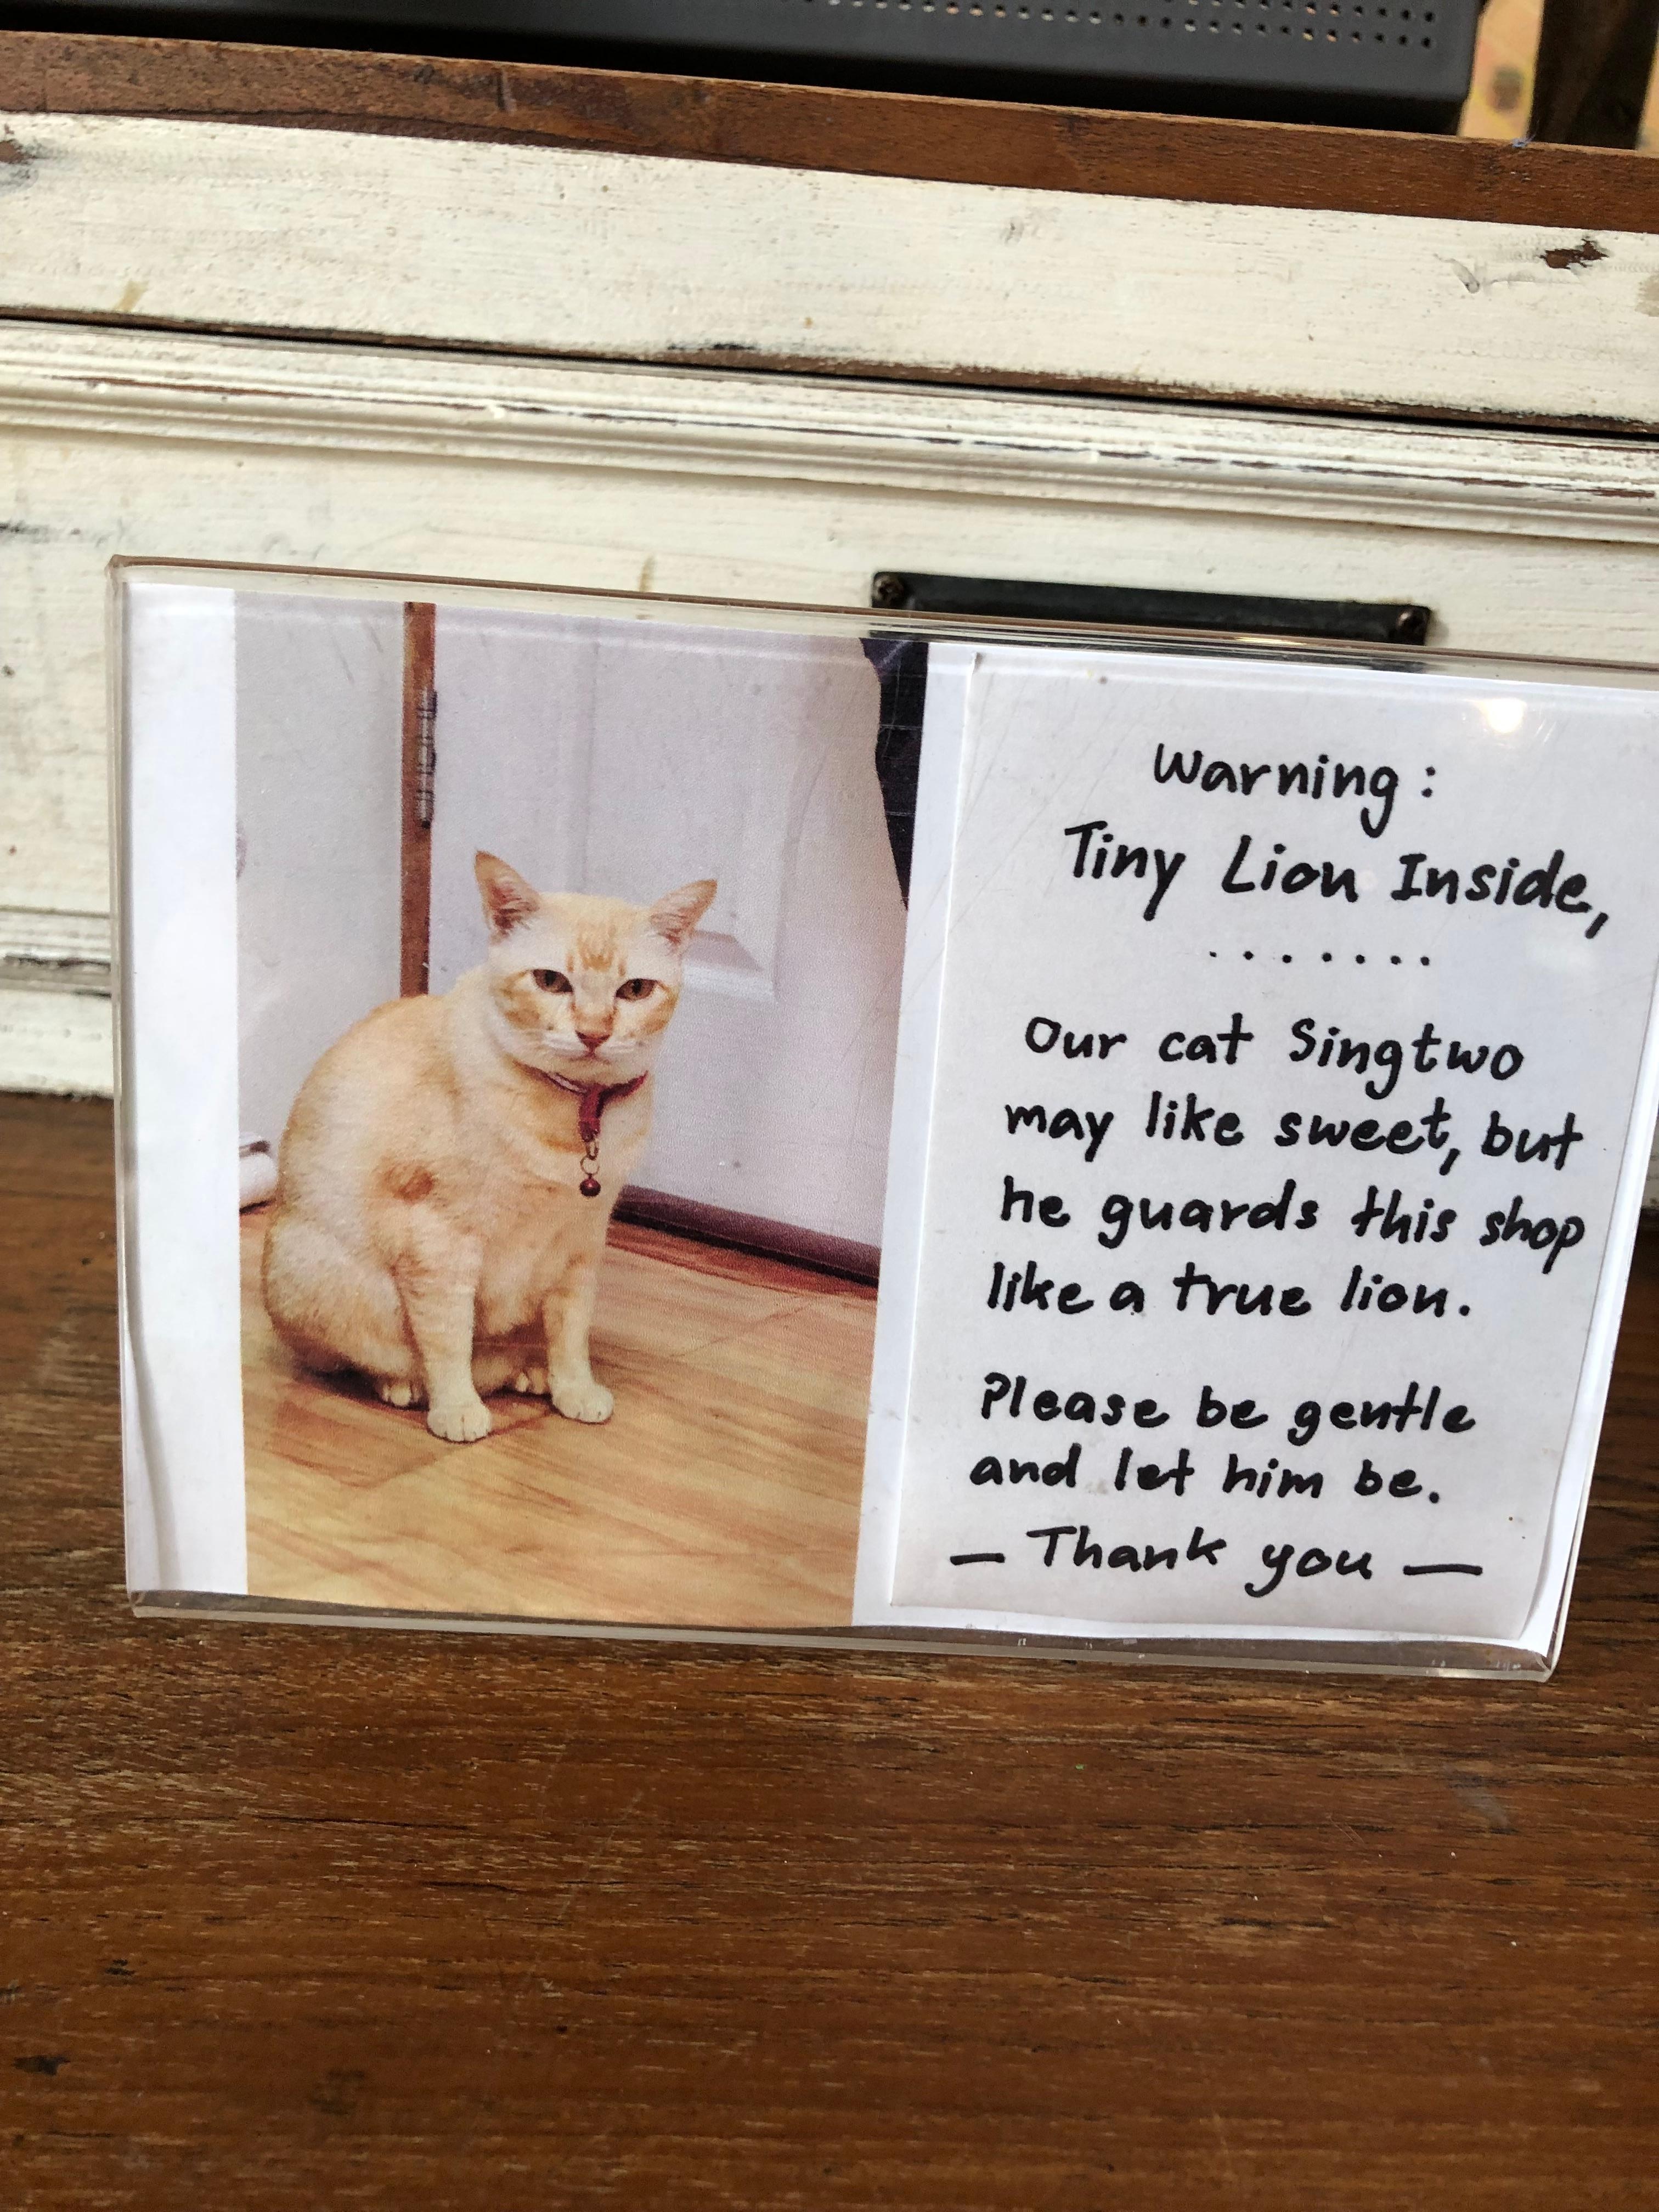 Warning :
Tiny Lion Inside,
.......
Our cat Singtwo
may like sweet, but
he guards this shop
like a true lion.
Please be gentle
and let him be.
— Thank you —